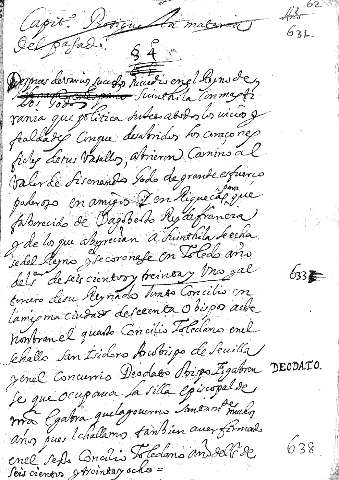 62
Capit. Prosigue la materia
del pasado.
Año
631.
§ 4º
Despues de varios sucesos sucedio en el Reyno de
los Godos Suinthila con mas ti
rania que politica sujeto a todos los vicios y
fealdades Con que desabridos los corazones
fieles de sus Vasallos, abrieron Camino al
valor de Sisenando Godo de grande esfuerço
poderoso en amigos y en Riqueças para que
faborecido de Dagoberto Rey de francia
y de los que aborrecian a Suinthila le echa
se del Reyno y se coronase en Toledo año
del sr. de seiscientos y treinta y Uno y al
tercero de su Reynado Junto Concilio en
la misma ciudad de setenta Obispos a que
nombran el quarto Concilio Toledano en el
se hallo San Isidoro Arçobispo de Sevilla
633
y en el Concurrio Deodato Obispo Egabren
DEODATO.
se que ocupava la silla Episcopal de
nra Egabra que la governo santamte muchos
años pues le hallamos tambien aver firmado
en el sexto Concilio Toledano año del Sr. de
638
seiscientos y treinta y ocho =